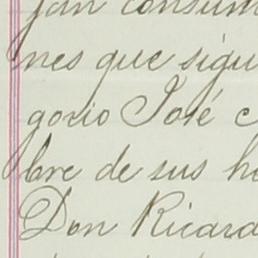 jan consum
nes que sigu
gorio José c
bre de sus h
Don Ricard